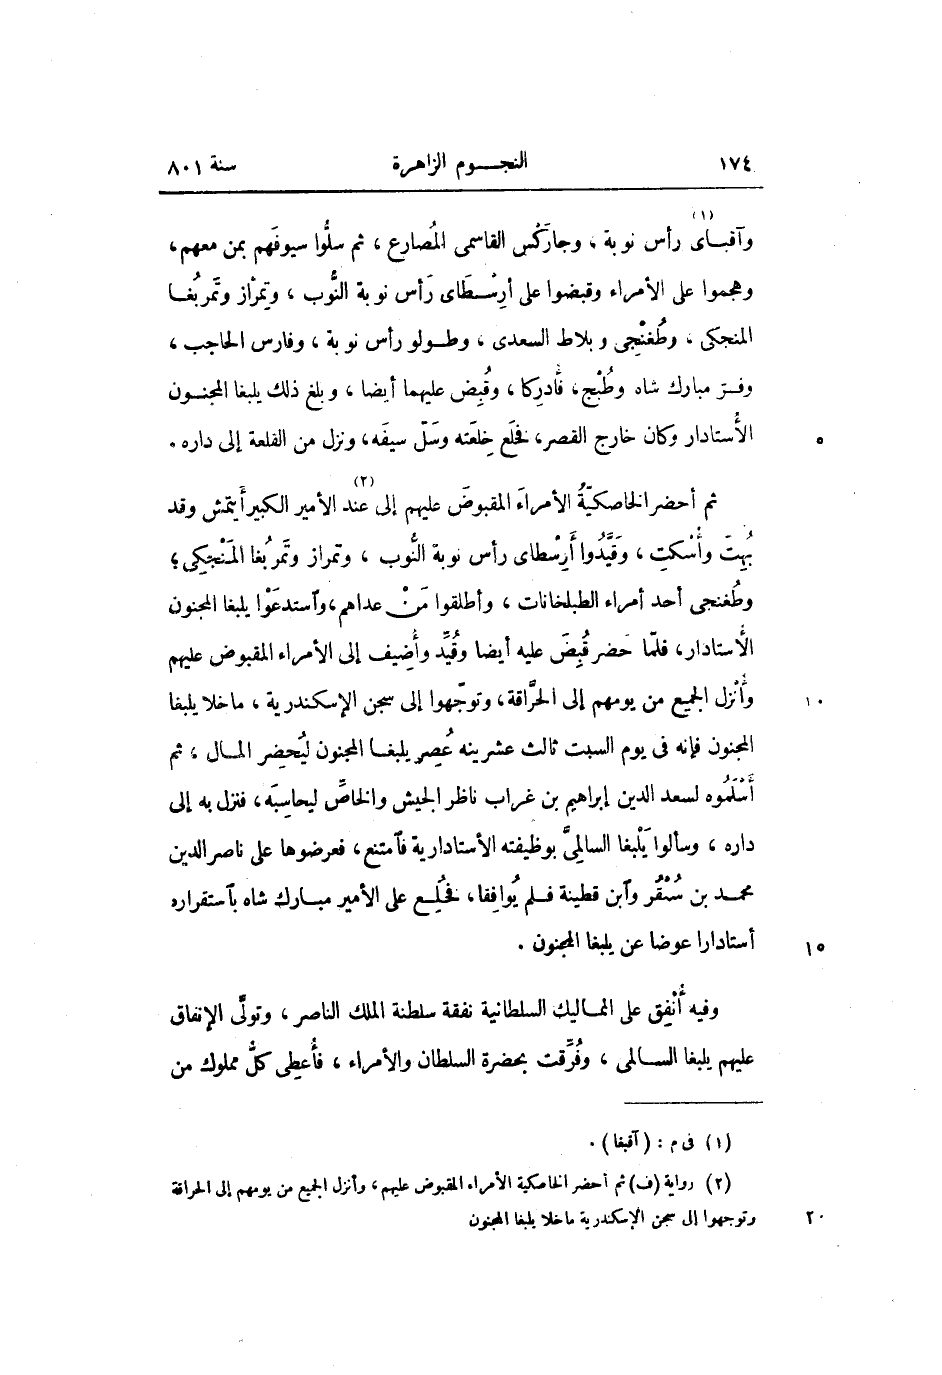 ١٧٤ النجـــوم الزاهرة سنة ٨٠١
(١)
وآقبـاى رأس نوبة ، وجارَكْس القاسمى المُصارع ، ثم سلُّوا سيوفَهم بمن معهم،
وهجموا على الأمراء وقبضوا على أرِسْـطَاى رَأس نوبة النُّوب ، وتِمرْاز وتَمرُبُغـا
المنجكى ، وطُغنْجِى وبلاط السعدى ، وطـولو رأس نوبة ، وفارس الحاجب ،
وفـر مبارك شاه وطُبْج، فأُدرِكا ، وقُبِض عليهما أيضا ، وبلغ ذلك يلبغا المجنـون
الأُستادار وكان خارج القصر، فخلَع خِلعَته وسَلّ سيفَه، ونزل من القلعة إلى داره . ٥
(٢)
ثم أحضر الخاصكيّةُ الأمراءَ المقبوضَ عليهم إلى عند الأمير الكبير أَيتمش وقد
بُهِتَ وأُسْكت ، وقَيَّدُوا أَرِسْطاى رأس نوبة النُّوب ، وتمراز وتَمرُبغا المَنْجكِى ؛
وطُغنجى أحد أمراء الطبلخانات ، وأطلقوا مَنْ عداهم، وٱستدعَوْا يلبغا المجنون
الأُستادار، فلمّا حَضر قُبِضَ عليه أيضا وقُيِّد وأُضِيف إلى الأمراء المقبوض عليهم
وأُنْزل الجميع من يومهم إلى الحرَّاقة، وتوجّهوا إلى سجن الإسكندرية ، ماخلا يلبغا ١٠
المجنون فإنه فى يوم السبت ثالث عشرينه عُصِر يلبغـا المجنون ليُحضِر المـال ، ثم
أَسْلمُوه لسعد الدين إبراهيم بن غراب ناظر الجيش والخاصّ ليحاسِبَه، فنزل به إلى
داره ، وسألوا يَلْبغا السالمىَّ بوظيفته الأستادارية فٱمتنع، فعرضوها على ناصر الدين
محمـد بن سُنْقُر وٱبن قطينة فـلم يُوافِقا، فخُلِـع على الأمير مبـارك شاه بٱستقراره
أستادارا عوضا عن يلبغا المجنون . ١٥
وفيه أُنْفِق على المـاليك السلطانية نفقة سلطنة الملك الناصر ، وتولَّى الإنفاق
عليهم يلبغا الســالمى ، وفُرِّقت بحضرة السلطان والأمراء ، فأُعطِى كلُّ مملوك من
(١) فى م : (آقبغا) .
(٢) رواية (ف) ثم أحضر الخاصكية الأمراء المقبوض عليهم، وأنزل الجميع من يومهم إلى الحراقة
وتوجهوا إلى سجن الإسكندرية ماخلا يلبغا المجنون ٢٠